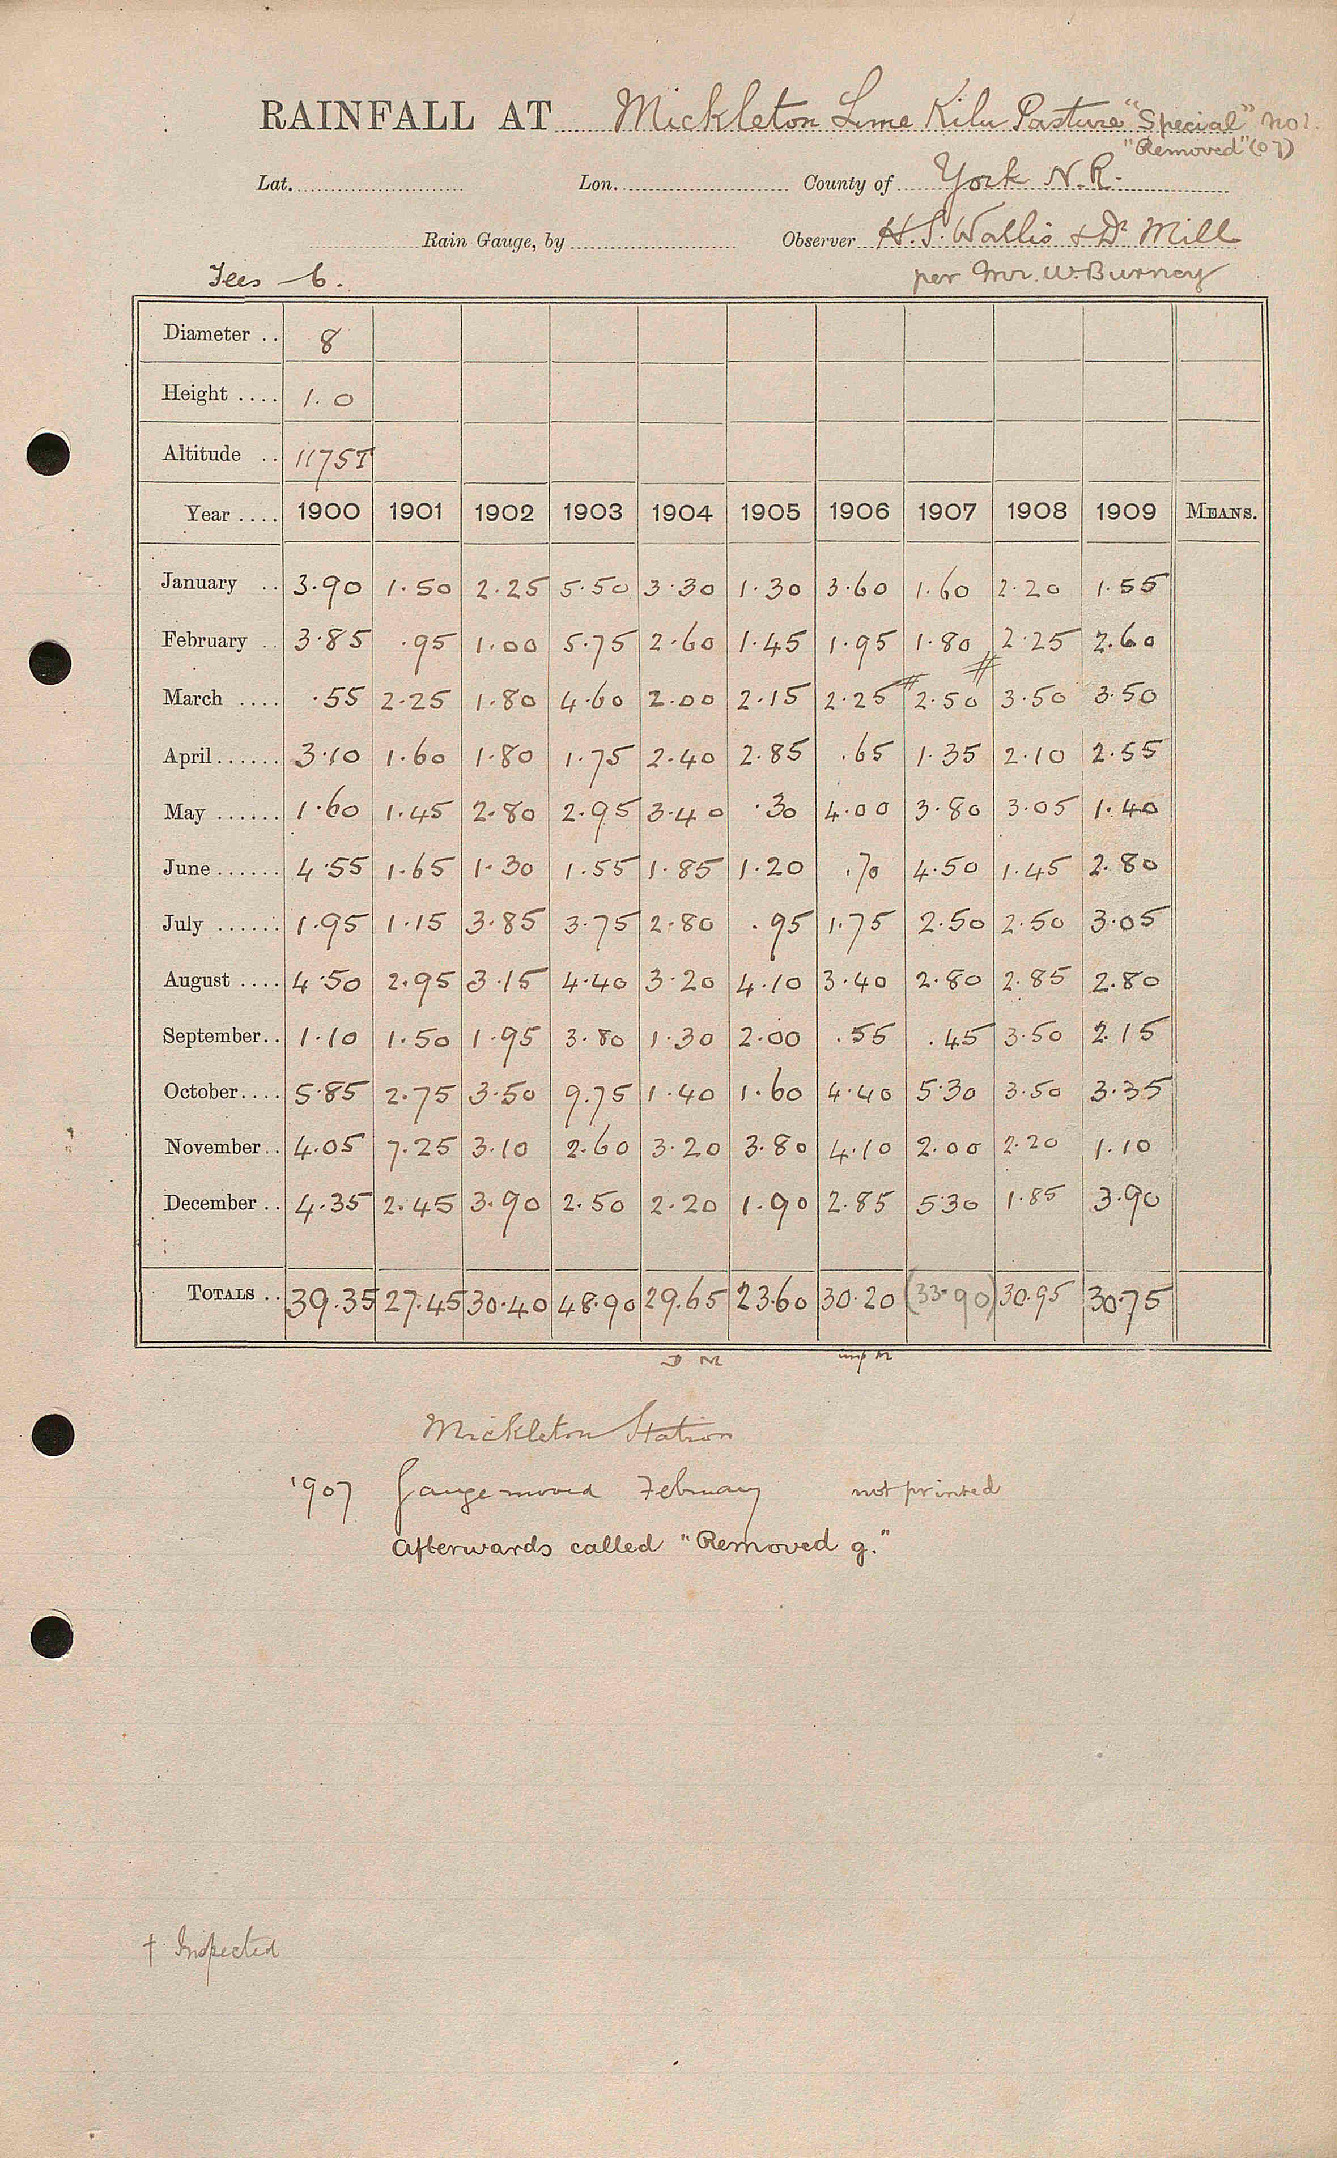 RAINFALL AT Mickleton Lime Kiln Pasture "Special" No 1.
"Removed" (07)
Lat. Lon. County of York N.R.
Rain Gauge, by Observer H.S. Wallis & Dr Mill
Tees — 6. per Mr. W. Burney
Diameter .. 8
Height .... 1.0
Altitude .. 1175T
Year .... 1900 1901 1902 1903 1904 1905 1906 1907 1908 1909 MEANS.
January .. 3.90 1.50 2.25 5.50 3.30 1.30 3.60 1.60 2.20 1.55
February .. 3.85 .95 1.00 5.75 2.60 1.45 1.95 1.80 2.25 2.60
March .... .55 2.25 1.80 4.60 2.00 2.15 2.25 # 2.50 # 3.50 3.50
April ...... 3.10 1.60 1.80 1.75 2.40 2.85 .65 1.35 2.10 2.55
May ...... 1.60 1.45 2.80 2.95 3.40 .30 4.00 3.80 3.05 1.40
June ...... 4.55 1.65 1.30 1.55 1.85 1.20 .70 4.50 1.45 2.80
July ...... 1.95 1.15 3.85 3.75 2.80 .95 1.75 2.50 2.50 3.05
August .... 4.50 2.95 3.15 4.40 3.20 4.10 3.40 2.80 2.85 2.80
September .. 1.10 1.50 1.95 3.80 1.30 2.00 .55 .45 3.50 2.15
October .... 5.85 2.75 3.50 9.75 1.40 1.60 4.40 5.30 3.50 3.35
November .. 4.05 7.25 3.10 2.60 3.20 3.80 4.10 2.00 2.20 1.10
December .. 4.35 2.45 3.90 2.50 2.20 1.90 2.85 5.30 1.85 3.90
TOTALS .. 39.35 27.45 30.40 48.90 29.65 23.60 30.20 (33.90) 30.95 30.75
Mickleton Station
1907 Gauge moved February not printed
Afterwards called "Removed g."
† Inspected